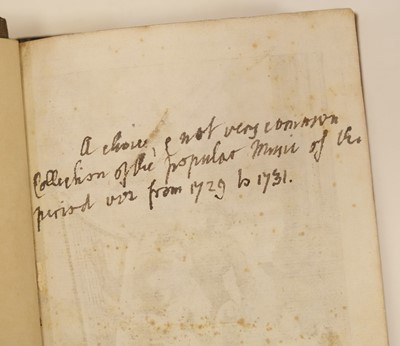 A choice, & not very common
Collection of the popular Music of the
period viz from 1729 to 1731.